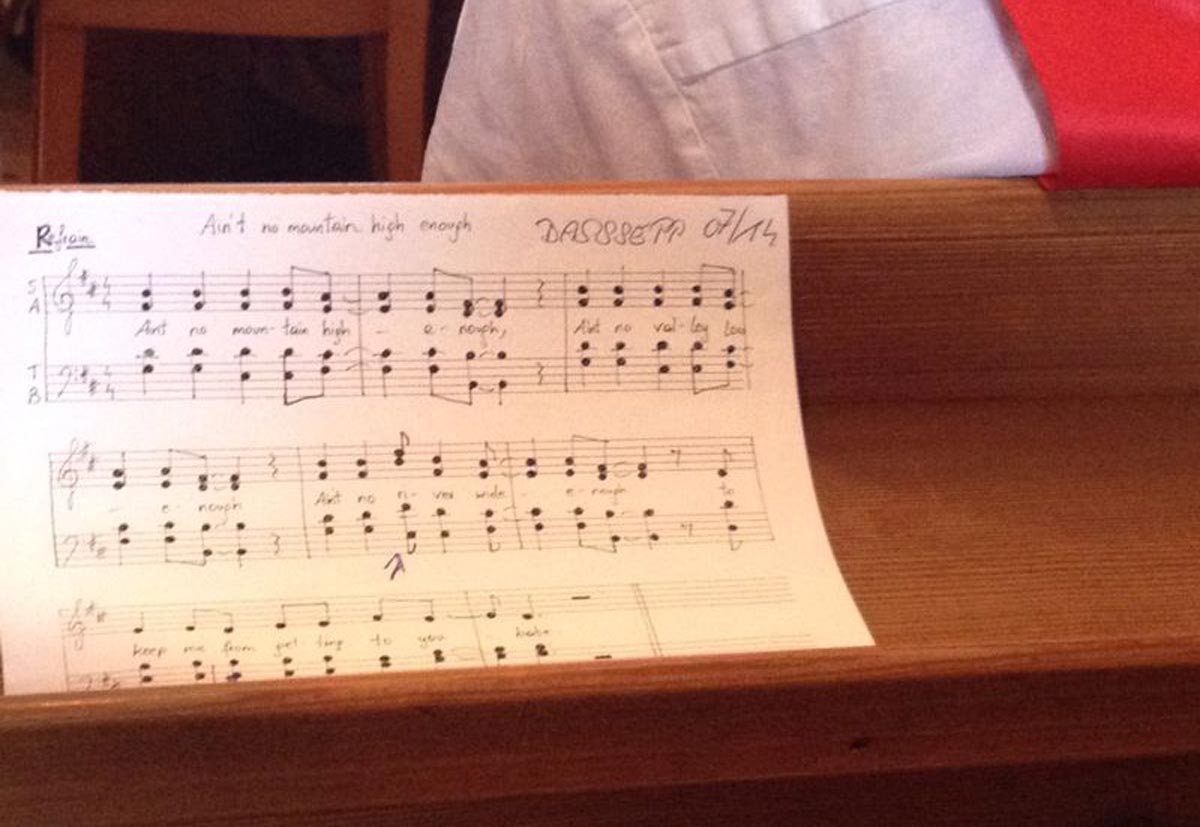 Refrain Ain't no mountain high enough DASSSEPP 07/14
S
A
Ain't no moun-tain high - e-nough, Ain't no val-ley low
T
B
- e-nough Ain't no ri-ver wide - e-nough to
keep me from get-ting to you - babe